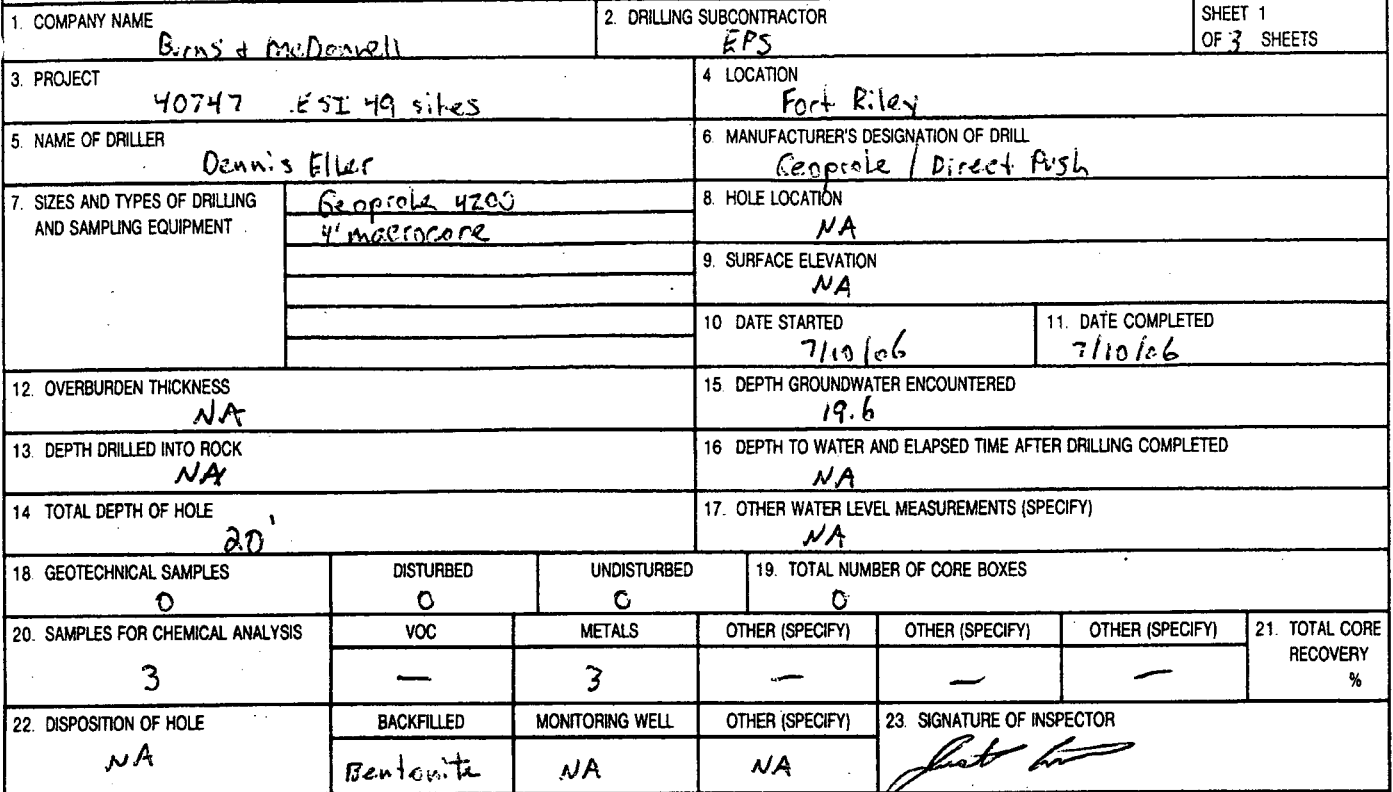 1. COMPANY NAME
Burns & McDonnell
2. DRILLING SUBCONTRACTOR
EPS
SHEET 1
OF 3 SHEETS
3. PROJECT
40747 ESI 49 sites
4 LOCATION
Fort Riley
5. NAME OF DRILLER
Dennis Eller
6. MANUFACTURER'S DESIGNATION OF DRILL
Geoprobe / Direct Push
7. SIZES AND TYPES OF DRILLING
AND SAMPLING EQUIPMENT
Geoprobe 4200
4' macrocore
8. HOLE LOCATION
NA
9. SURFACE ELEVATION
NA
10 DATE STARTED
7/10/06
11. DATE COMPLETED
7/10/06
12. OVERBURDEN THICKNESS
NA
15. DEPTH GROUNDWATER ENCOUNTERED
19.6
13. DEPTH DRILLED INTO ROCK
NA
16 DEPTH TO WATER AND ELAPSED TIME AFTER DRILLING COMPLETED
NA
14 TOTAL DEPTH OF HOLE
20'
17. OTHER WATER LEVEL MEASUREMENTS (SPECIFY)
NA
18. GEOTECHNICAL SAMPLES
0
DISTURBED
0
UNDISTURBED
0
19. TOTAL NUMBER OF CORE BOXES
0
20. SAMPLES FOR CHEMICAL ANALYSIS
3
VOC
—
METALS
3
OTHER (SPECIFY)
—
OTHER (SPECIFY)
—
OTHER (SPECIFY)
—
21. TOTAL CORE
RECOVERY
%
22. DISPOSITION OF HOLE
NA
BACKFILLED
Bentonite
MONITORING WELL
NA
OTHER (SPECIFY)
NA
23. SIGNATURE OF INSPECTOR